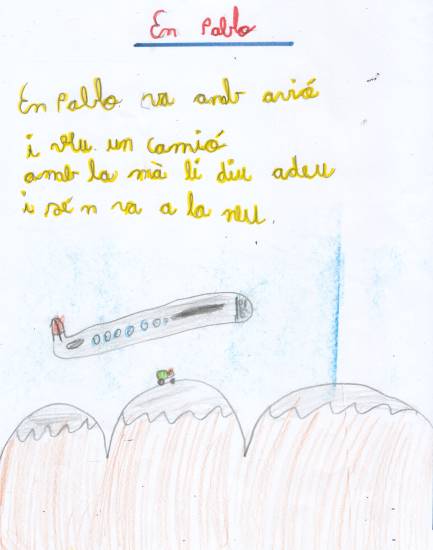 En Pablo
En Pablo va amb avió
i veu un camió
amb la mà li diu adeu
i sé n va a la neu.